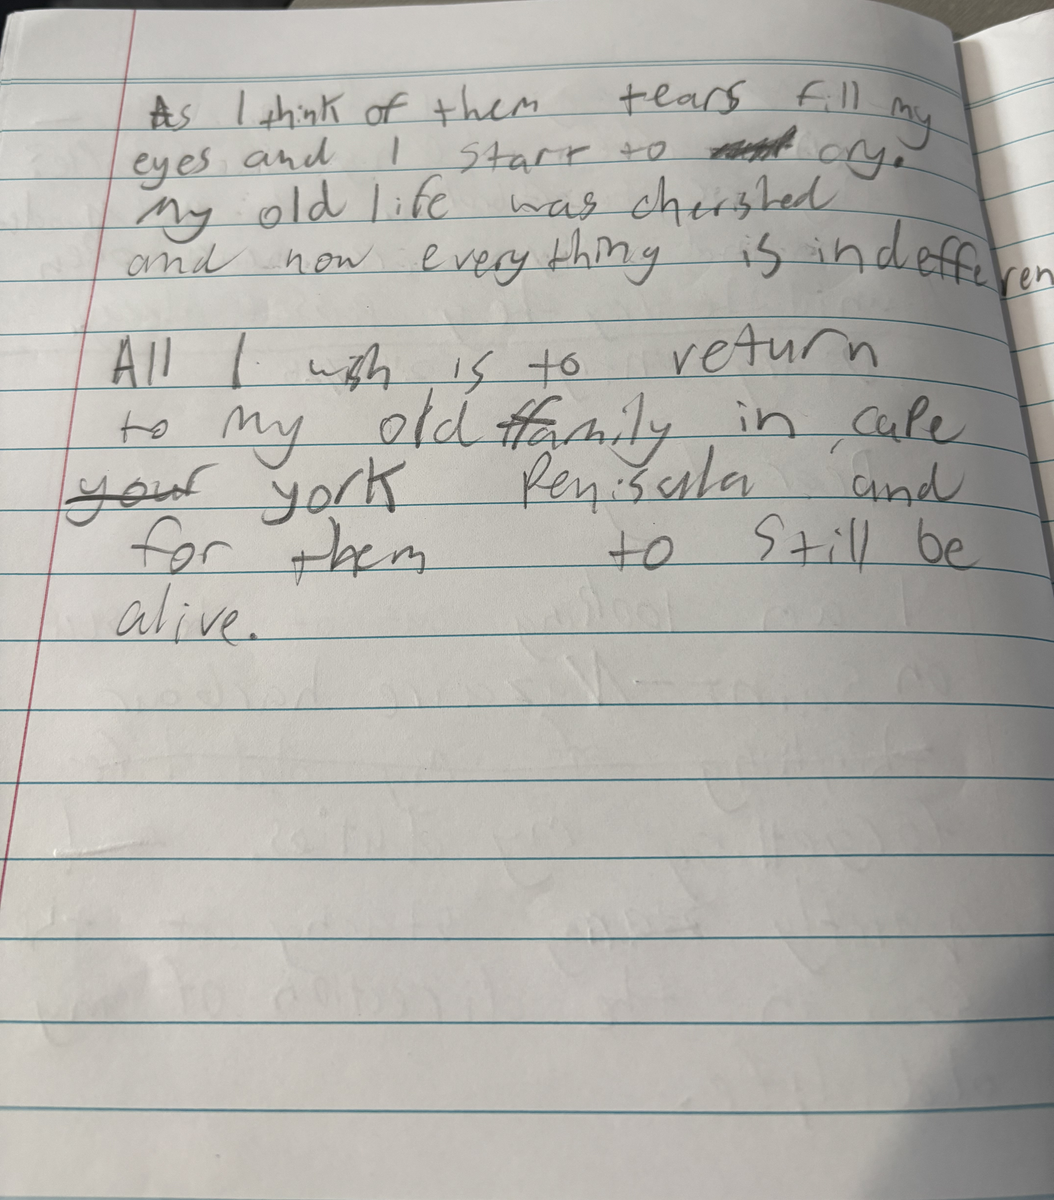 As I think of them tears fill my
eyes and I start to cry.
My old life was cherished
and now everything is indefferen
All I wish is to return
to my old family in cape
your york Peniscula and
for them to still be
alive.